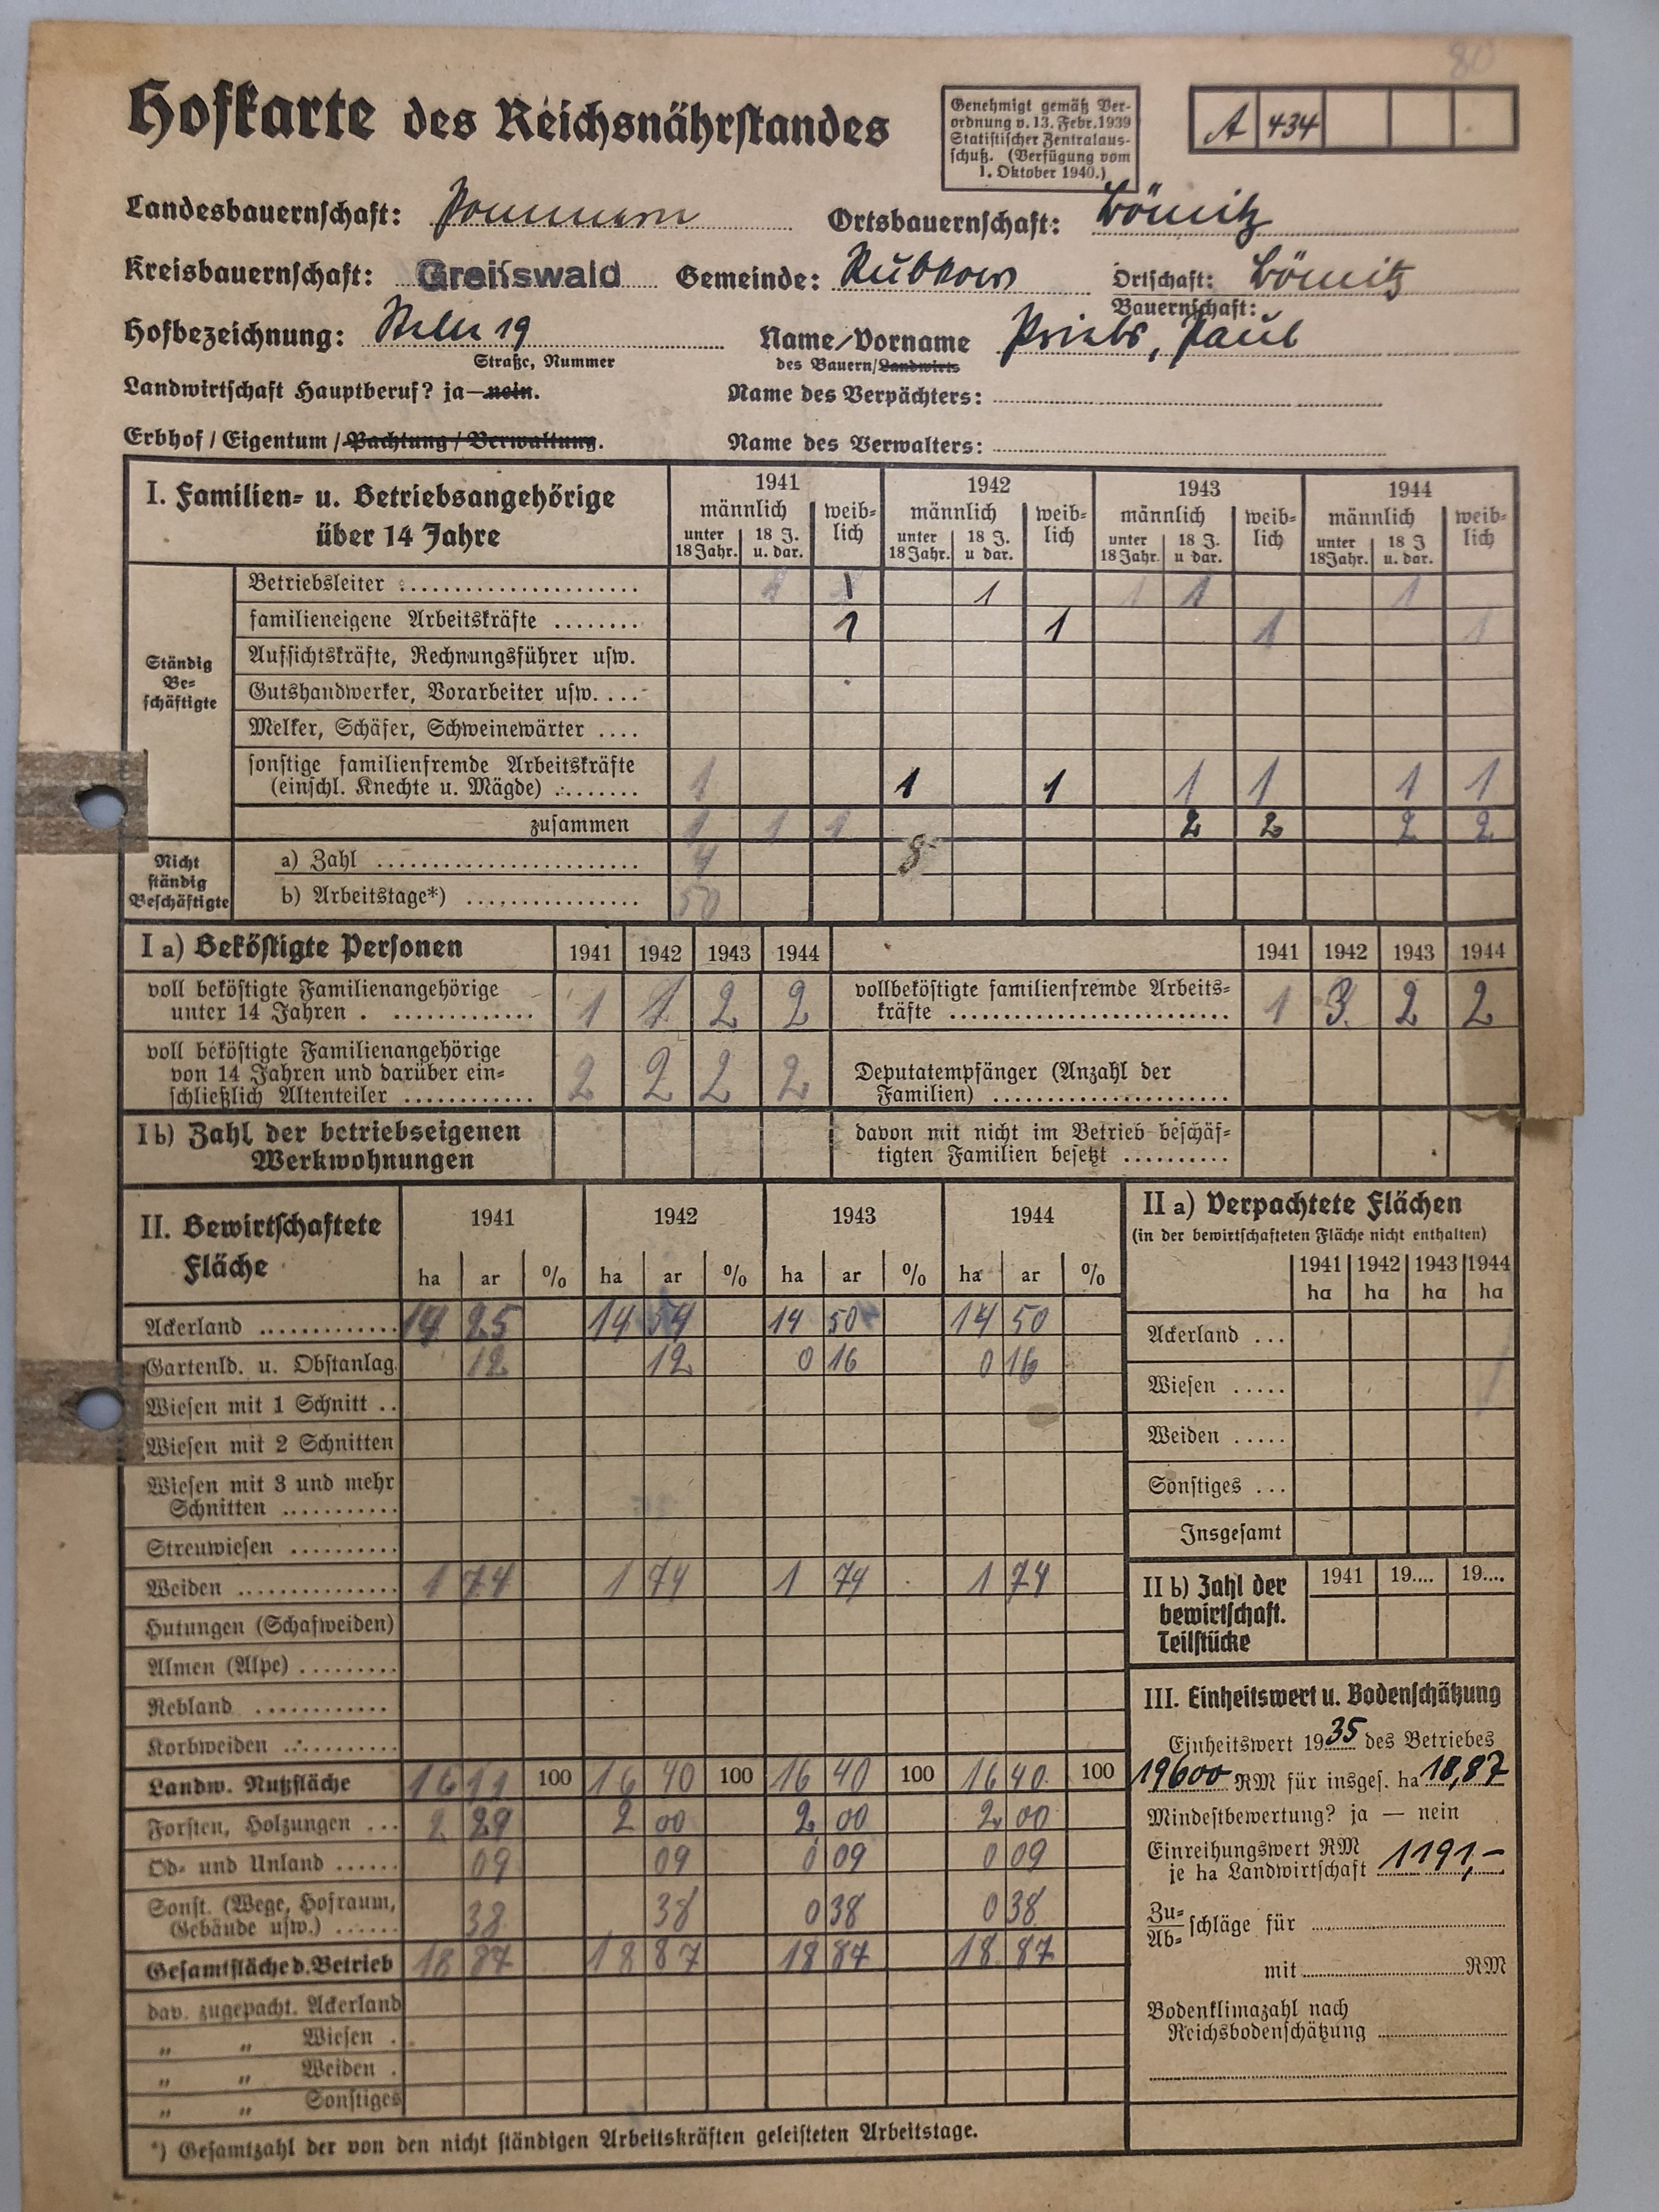 80
Hofkarte des Reichsnährstandes
Genehmigt gemäß Ver-
ordnung v. 13. Febr. 1939
Statistischer Zentralaus-
schuß. (Verfügung vom
1. Oktober 1940.)
A 434
Landesbauernschaft: Pommern Ortsbauernschaft: Lömitz
Kreisbauernschaft: Greifswald Gemeinde: Rubkow Ortschaft: Lömitz
Bauernschaft:
Hofbezeichnung: 19 Name/Vorname Priebs, Paul
Straße, Nummer des Bauern/Landwirts
Landwirtschaft Hauptberuf? ja—nein. Name des Verpächters:
Erbhof / Eigentum / Pachtung / Verwaltung. Name des Verwalters:
I. Familien- u. Betriebsangehörige
über 14 Jahre
1941 1942 1943 1944
männlich weib-lich männlich weib-lich männlich weib-lich männlich weib-lich
unter 18 Jahr. 18 J. u. dar. unter 18 Jahr. 18 J. u dar. unter 18 Jahr. 18 J. u dar. unter 18 Jahr. 18 J u. dar.
Ständig
Be-
schäftigte
Betriebsleiter 1 1 1 1 1
familieneigene Arbeitskräfte 1 1 1 1
Aufsichtskräfte, Rechnungsführer usw.
Gutshandwerker, Vorarbeiter usw.
Melker, Schäfer, Schweinewärter
sonstige familienfremde Arbeitskräfte
(einschl. Knechte u. Mägde) 1 1 1 1 1 1 1
zusammen 1 1 1 2 2 2 2
Nicht
ständig
Beschäftigte
a) Zahl 4 8
b) Arbeitstage*) 50
I a) Beköstigte Personen 1941 1942 1943 1944 1941 1942 1943 1944
voll beköstigte Familienangehörige
unter 14 Jahren 1 1 2 2
vollbeköstigte familienfremde Arbeits-
kräfte 1 3 2 2
voll beköstigte Familienangehörige
von 14 Jahren und darüber ein-
schließlich Altenteiler 2 2 2 2
Deputatempfänger (Anzahl der
Familien)
I b) Zahl der betriebseigenen
Werkwohnungen
davon mit nicht im Betrieb beschäf-
tigten Familien besetzt
II. Bewirtschaftete
Fläche
1941 1942 1943 1944
ha ar % ha ar % ha ar % ha ar %
Ackerland 14 25 14 54 14 50 14 50
Gartenld. u. Obstanlag. 12 12 0 16 0 16
Wiesen mit 1 Schnitt ..
Wiesen mit 2 Schnitten
Wiesen mit 3 und mehr
Schnitten
Streuwiesen
Weiden 1 74 1 74 1 74 1 74
Hutungen (Schafweiden)
Almen (Alpe)
Rebland
Korbweiden
Landw. Nutzfläche 16 11 100 16 40 100 16 40 100 16 40 100
Forsten, Holzungen 2 29 2 00 2 00 2 00
Öd- und Unland 09 09 0 09 0 09
Sonst. (Wege, Hofraum,
Gebäude usw.) 38 38 0 38 0 38
Gesamtfläche d. Betrieb 18 87 18 87 18 87 18 87
dav. zugepacht. Ackerland
„ „ Wiesen
„ „ Weiden
„ „ Sonstiges
*) Gesamtzahl der von den nicht ständigen Arbeitskräften geleisteten Arbeitstage.
II a) Verpachtete Flächen
(in der bewirtschafteten Fläche nicht enthalten)
1941 1942 1943 1944
ha ha ha ha
Ackerland ...
Wiesen .....
Weiden .....
Sonstiges ...
Insgesamt
II b) Zahl der
bewirtschaft.
Teilstücke
1941 19.... 19....
III. Einheitswert u. Bodenschätzung
Einheitswert 1935 des Betriebes
19600 RM für insges. ha 18,87
Mindestbewertung? ja — nein
Einreihungswert RM
je ha Landwirtschaft 1191,-
Zu-
Ab- schläge für
mit RM
Bodenklimazahl nach
Reichsbodenschätzung